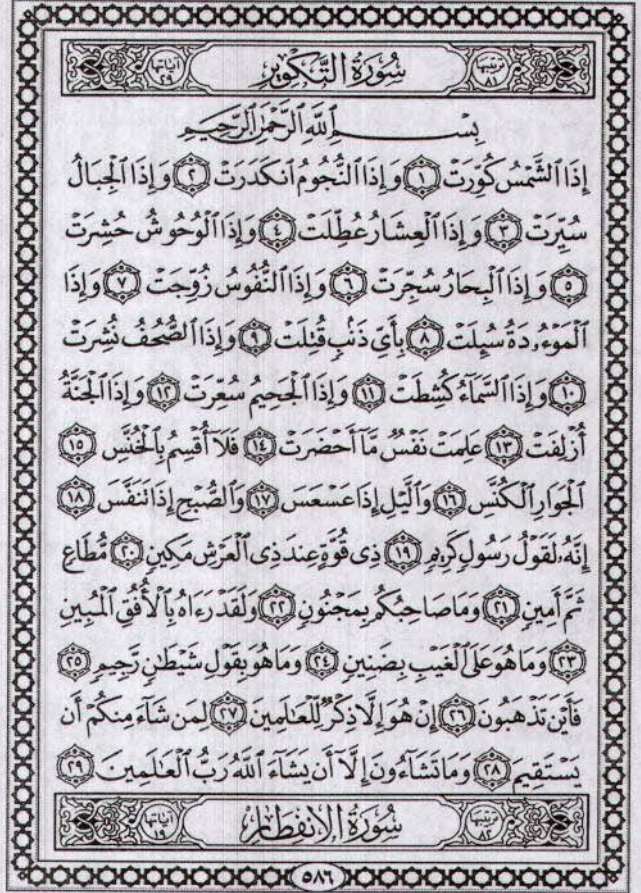 ترتيبها ٨١ سُورَةُ التَّكْوِيرِ آياتها ٢٩
بِسْمِ ٱللَّهِ ٱلرَّحْمَٰنِ ٱلرَّحِيمِ
إِذَا ٱلشَّمْسُ كُوِّرَتْ ١ وَإِذَا ٱلنُّجُومُ ٱنكَدَرَتْ ٢ وَإِذَا ٱلْجِبَالُ
سُيِّرَتْ ٣ وَإِذَا ٱلْعِشَارُ عُطِّلَتْ ٤ وَإِذَا ٱلْوُحُوشُ حُشِرَتْ
٥ وَإِذَا ٱلْبِحَارُ سُجِّرَتْ ٦ وَإِذَا ٱلنُّفُوسُ زُوِّجَتْ ٧ وَإِذَا
ٱلْمَوْءُۥدَةُ سُئِلَتْ ٨ بِأَيِّ ذَنۢبٍ قُتِلَتْ ٩ وَإِذَا ٱلصُّحُفُ نُشِرَتْ
١٠ وَإِذَا ٱلسَّمَآءُ كُشِطَتْ ١١ وَإِذَا ٱلْجَحِيمُ سُعِّرَتْ ١٢ وَإِذَا ٱلْجَنَّةُ
أُزْلِفَتْ ١٣ عَلِمَتْ نَفْسٌ مَّآ أَحْضَرَتْ ١٤ فَلَآ أُقْسِمُ بِٱلْخُنَّسِ ١٥
ٱلْجَوَارِ ٱلْكُنَّسِ ١٦ وَٱلَّيْلِ إِذَا عَسْعَسَ ١٧ وَٱلصُّبْحِ إِذَا تَنَفَّسَ ١٨
إِنَّهُۥ لَقَوْلُ رَسُولٍ كَرِيمٍ ١٩ ذِى قُوَّةٍ عِندَ ذِى ٱلْعَرْشِ مَكِينٍ ٢٠ مُّطَاعٍ
ثَمَّ أَمِينٍ ٢١ وَمَا صَاحِبُكُم بِمَجْنُونٍ ٢٢ وَلَقَدْ رَءَاهُ بِٱلْأُفُقِ ٱلْمُبِينِ
٢٣ وَمَا هُوَ عَلَى ٱلْغَيْبِ بِضَنِينٍ ٢٤ وَمَا هُوَ بِقَوْلِ شَيْطَٰنٍ رَّجِيمٍ ٢٥
فَأَيْنَ تَذْهَبُونَ ٢٦ إِنْ هُوَ إِلَّا ذِكْرٌ لِّلْعَٰلَمِينَ ٢٧ لِمَن شَآءَ مِنكُمْ أَن
يَسْتَقِيمَ ٢٨ وَمَا تَشَآءُونَ إِلَّآ أَن يَشَآءَ ٱللَّهُ رَبُّ ٱلْعَٰلَمِينَ ٢٩
ترتيبها ٨٢ سُورَةُ الانفِطَارِ آياتها ١٩
٥٨٦